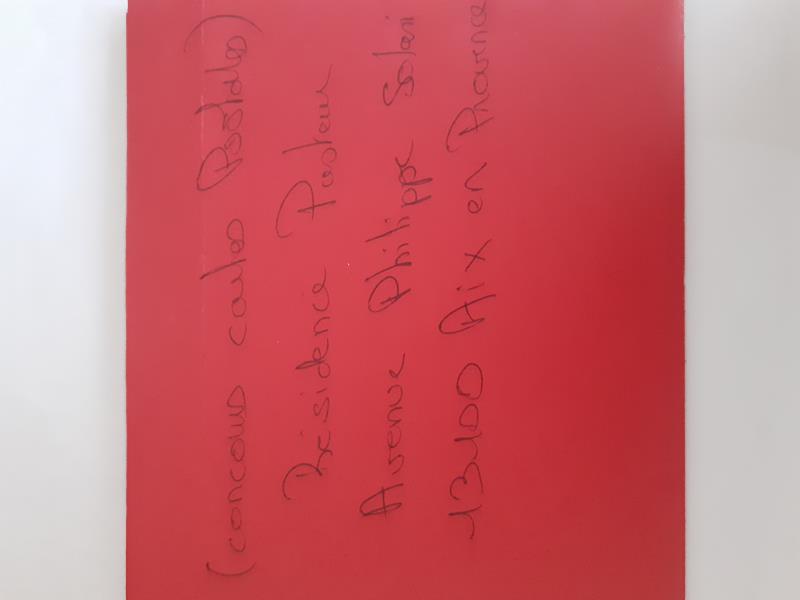 (concours cartes Postales)
Résidence Pasteur
Avenue Philippe Solari
13100 Aix en Provence